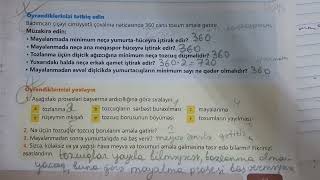 Öyrəndiklərinizi tətbiq edin
Badımcan çiçəyi cinsiyyətli çoxalma nəticəsində 360 ədəd toxum əmələ gətirir.
Müzakirə edin:
• Mayalanmada minimum neçə yumurta-hüceyrə iştirak edir? 360
• Mayalanmada neçə ana meqaspor hüceyrə iştirak edir? 360
• Tozlanma üçün dişicik ağızcığına minimum neçə tozcuq düşməlidir? 360
• Yuxarıdakı halda neçə erkək qamet iştirak edir? 360·2=720
• Mayalanmadan əvvəl dişicikdə yumurtacıqların minimum sayı nə qədər olmalıdır? 360
Öyrəndiklərinizi yoxlayın
1. Aşağıdakı prosesləri başvermə ardıcıllığına görə sıralayın.
a tozlanma
c tozcuqların sərbəst buraxılması
e mayalanma
b rüşeymin inkişafı
d tozcuq borusunun böyüməsi
2. Nə üçün tozluqlar tozcuq borularını əmələ gətirir?
3. Mayalanmadan sonra yumurtalıqda nə baş verir? meyvə əmələ gətirir
4. Sizcə, küləksiz və ya yağışlı hava meyvə və toxumun əmələ gəlməsinə təsir edə bilərmi? Fikrinizi
əsaslandırın. tozcuqlar yayıla bilməyəcək, tozlanma olma-
yacaq, buna görə mayalanma prosesi baş verməyəcək